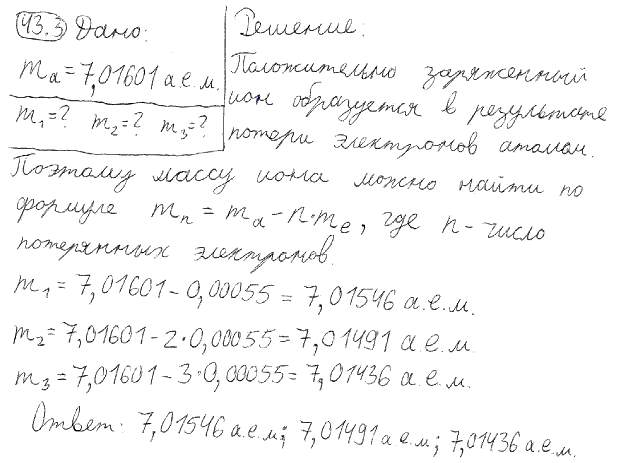 43.3 Дано:
mₐ = 7,01601 а.е.м.
m₁ = ? m₂ = ? m₃ = ?
Решение:
Положительно заряженный
ион образуется в результате
потери электронов атомам.
Поэтому массу иона можно найти по
формуле mₙ = mₐ - n·mₑ, где n - число
потерянных электронов.
m₁ = 7,01601 - 0,00055 = 7,01546 а.е.м.
m₂ = 7,01601 - 2·0,00055 = 7,01491 а.е.м.
m₃ = 7,01601 - 3·0,00055 = 7,01436 а.е.м.
Ответ: 7,01546 а.е.м; 7,01491 а.е.м; 7,01436 а.е.м.